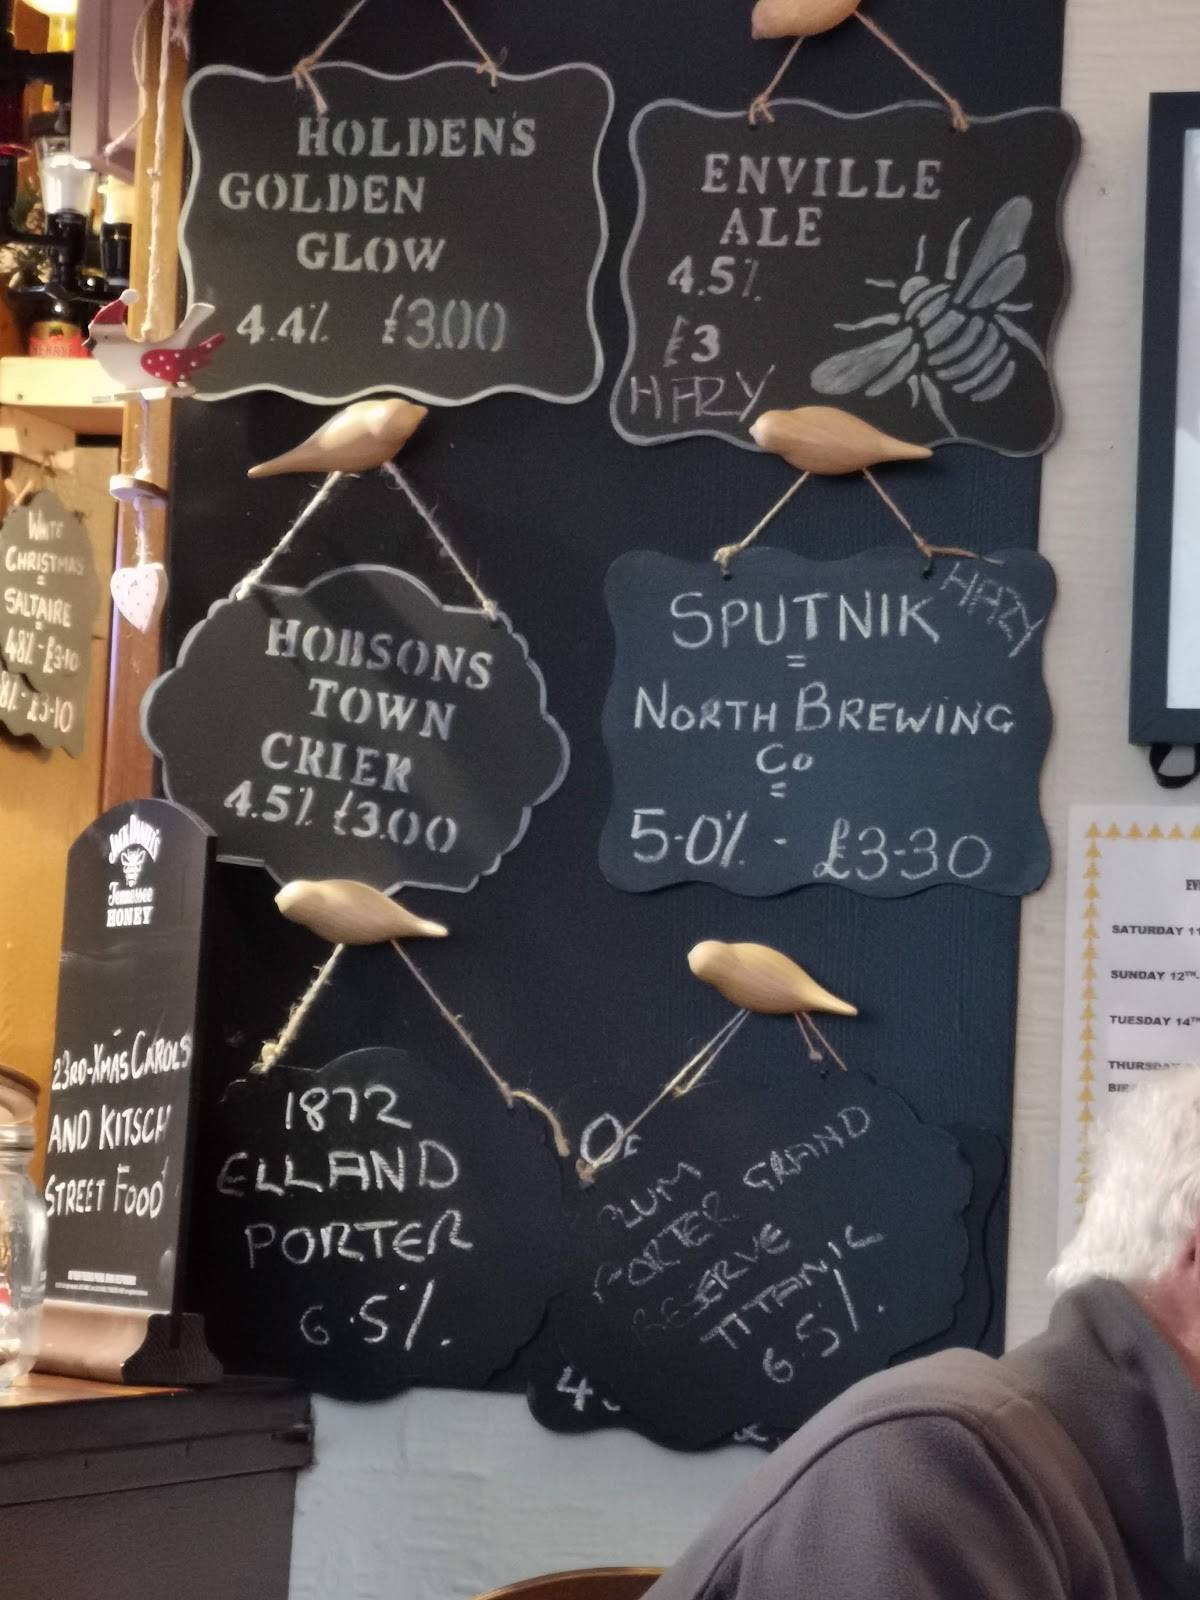 HOLDEN'S
GOLDEN
GLOW
4.4% £3.00
ENVILLE
ALE
4.5%
£3
HAZY
HOBSONS
TOWN
CRIER
4.5% £3.00
HAZY
SPUTNIK
=
NORTH BREWING
Co
=
5.0% - £3-30
WHITE
CHRISTMAS
=
SALTAIRE
4.8% - £3.10
8% - £3-10
JACK DANIEL'S
Tennessee
HONEY
23RD-XMAS CAROLS
AND KITSCH
STREET FOOD
1872
ELLAND
PORTER
6.5%.
PLUM
PORTER GRAND
RESERVE
TITANIC
6.5%.
SATURDAY 11
SUNDAY 12TH
TUESDAY 14TH
THURSDAY